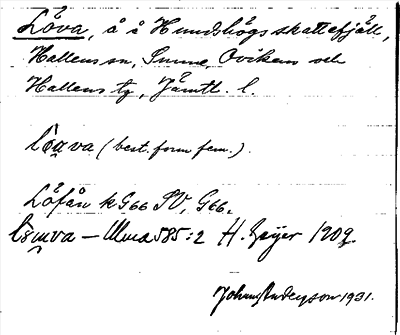 Löva, å å Hundshögs skattefjäll,
Hallens sn, Sunne, Ovikens och
Hallens tg, Jämtl. l.
(best. form fem.).
Löfån kG66 SV, G66.
– Ulma 585:2 H. Geijer 1909.
Johannisson 1931.